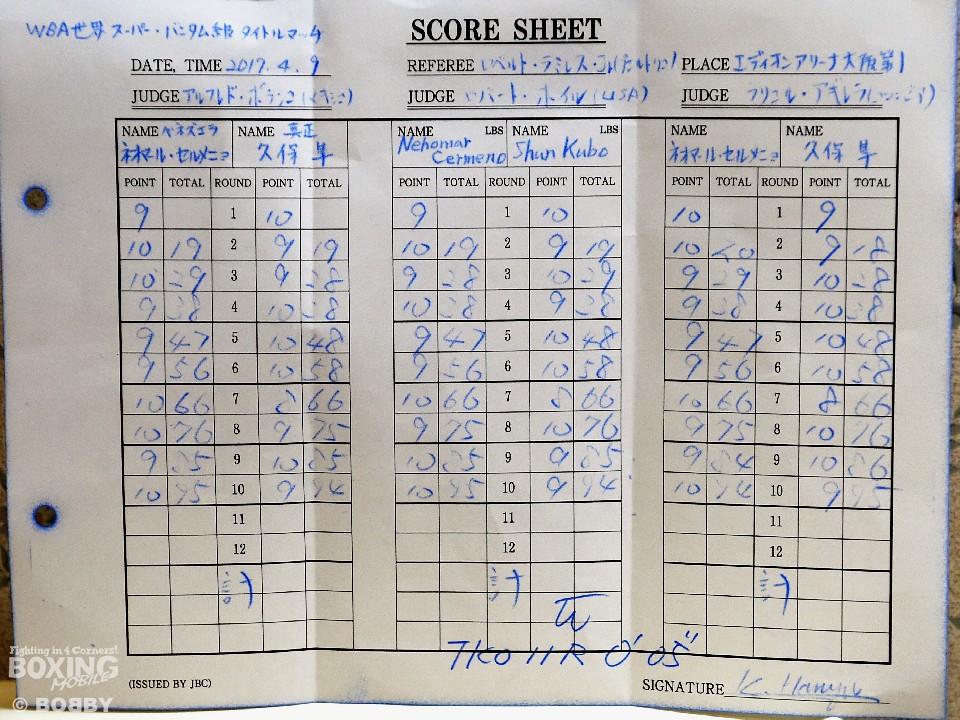 WBA世界 スーパー・バンタム級 タイトルマッチ
SCORE SHEET
DATE, TIME 2017. 4. 9
REFEREE
PLACE エディオンアリーナ大阪第1
JUDGE アルフレド・ポランコ(メキシコ)
JUDGE ロバート・ホイル(USA)
JUDGE
NAME ベネズエラ NAME 真正 NAME LBS NAME LBS NAME NAME
ネオマール・セルメニョ 久保 隼 Nehomar Cermeno Shun Kubo ネオマール・セルメニョ 久保 隼
POINT TOTAL ROUND POINT TOTAL POINT TOTAL ROUND POINT TOTAL POINT TOTAL ROUND POINT TOTAL
9 1 10 9 1 10 10 1 9
10 19 2 9 19 10 19 2 9 19 10 20 2 9 18
10 29 3 9 28 9 28 3 10 29 9 29 3 10 28
9 38 4 10 38 10 38 4 9 38 9 38 4 10 38
9 47 5 10 48 9 47 5 10 48 9 47 5 10 48
9 56 6 10 58 9 56 6 10 58 9 56 6 10 58
10 66 7 8 66 10 66 7 8 66 10 66 7 8 66
10 76 8 9 75 9 75 8 10 76 9 75 8 10 76
9 85 9 10 85 10 85 9 9 85 9 84 9 10 86
10 95 10 9 94 10 95 10 9 94 10 94 10 9 95
11 11 11
12 12 12
計 計 計
TKO 11R 0'05"
(ISSUED BY JBC)
SIGNATURE
Fighting in 4 Corners!
BOXING
MOBILE
© BOBBY